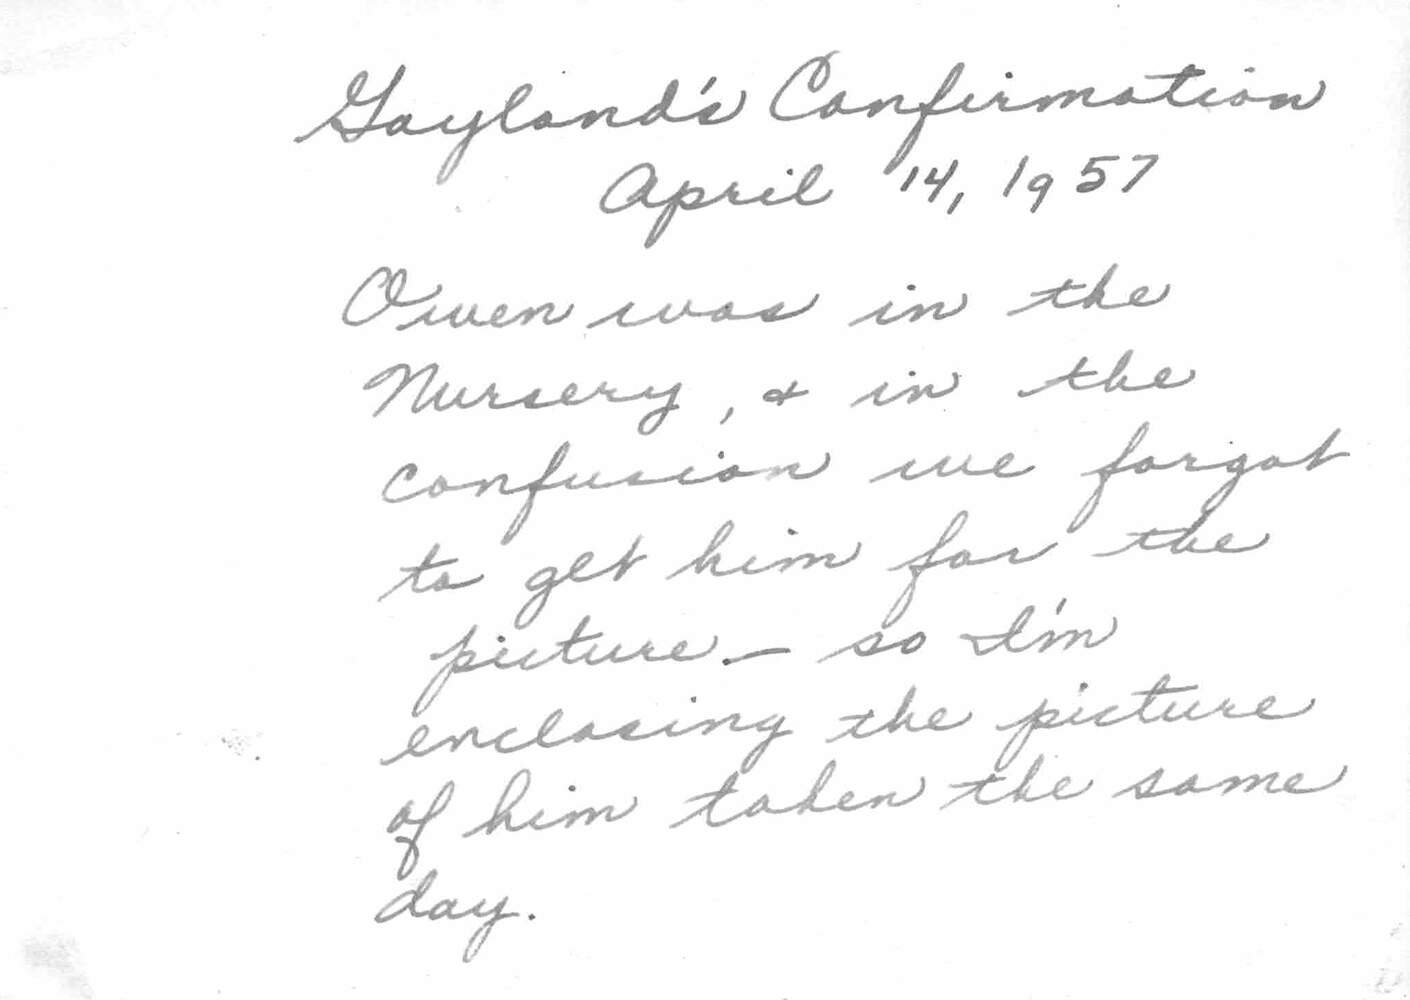 Gayland's Confirmation
April 14, 1957
Owen was in the
Nursery, & in the
confusion we forgot
to get him for the
picture - so I'm
enclosing the picture
of him taken the same
day.